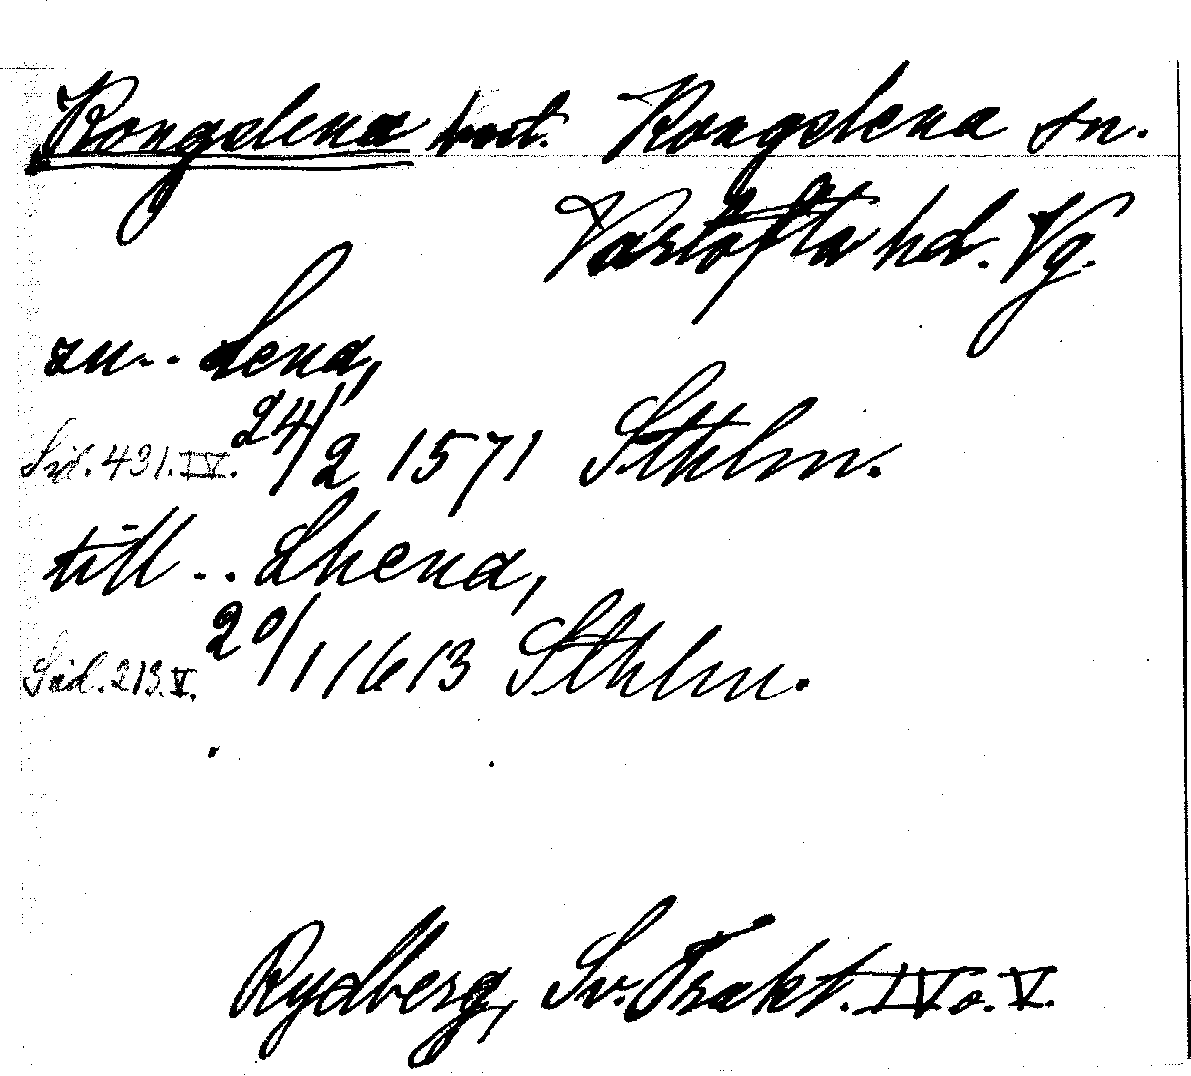 Kongslena bost. Kongslena sn.
Vartofta hd. Vg.
zu.. Lena,
Sid. 431. IV. 24/2 1571 Sthlm.
till .. Lhena,
Sid. 213. V. 20/1 1613 Sthlm.
Rydberg, Sv. Trakt. IV o. V.